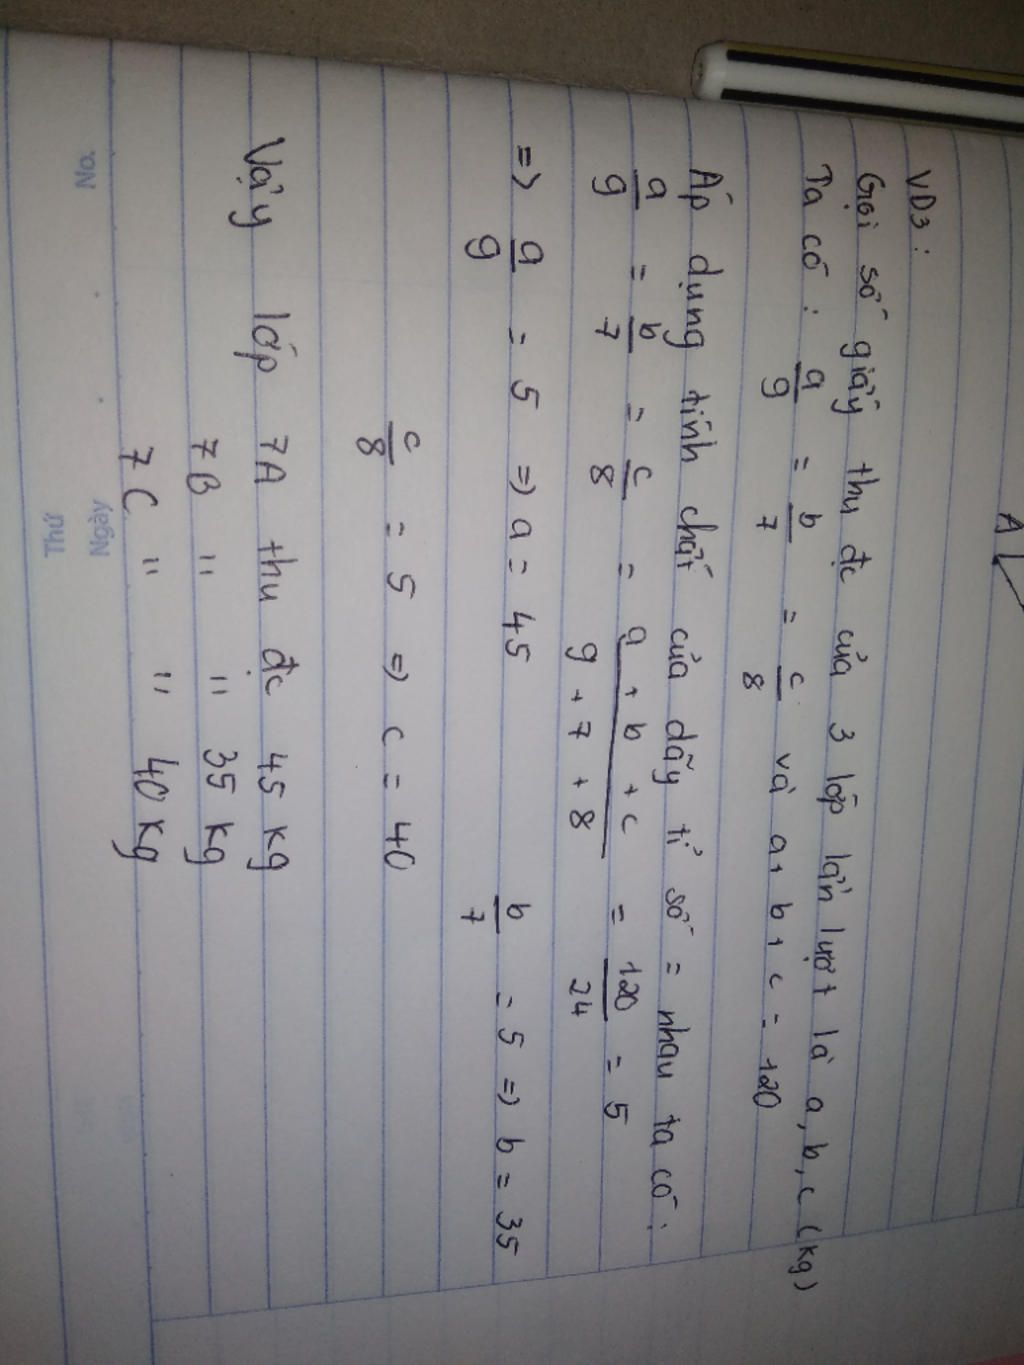 A
VD3 :
Gọi số giấy thu đc của 3 lớp lần lượt là a, b, c (kg)
Ta có : a/9 = b/7 = c/8 và a + b + c = 120
Áp dụng tính chất của dãy tỉ số = nhau ta có :
a/9 = b/7 = c/8 = a + b + c / 9 + 7 + 8 = 120/24 = 5
=> a/9 = 5 => a = 45 b/7 = 5 => b = 35
c/8 = 5 => c = 40
Vậy lớp 7A thu đc 45 kg
7B " " 35 kg
7C " " 40 kg
No.
Ngày
Thứ